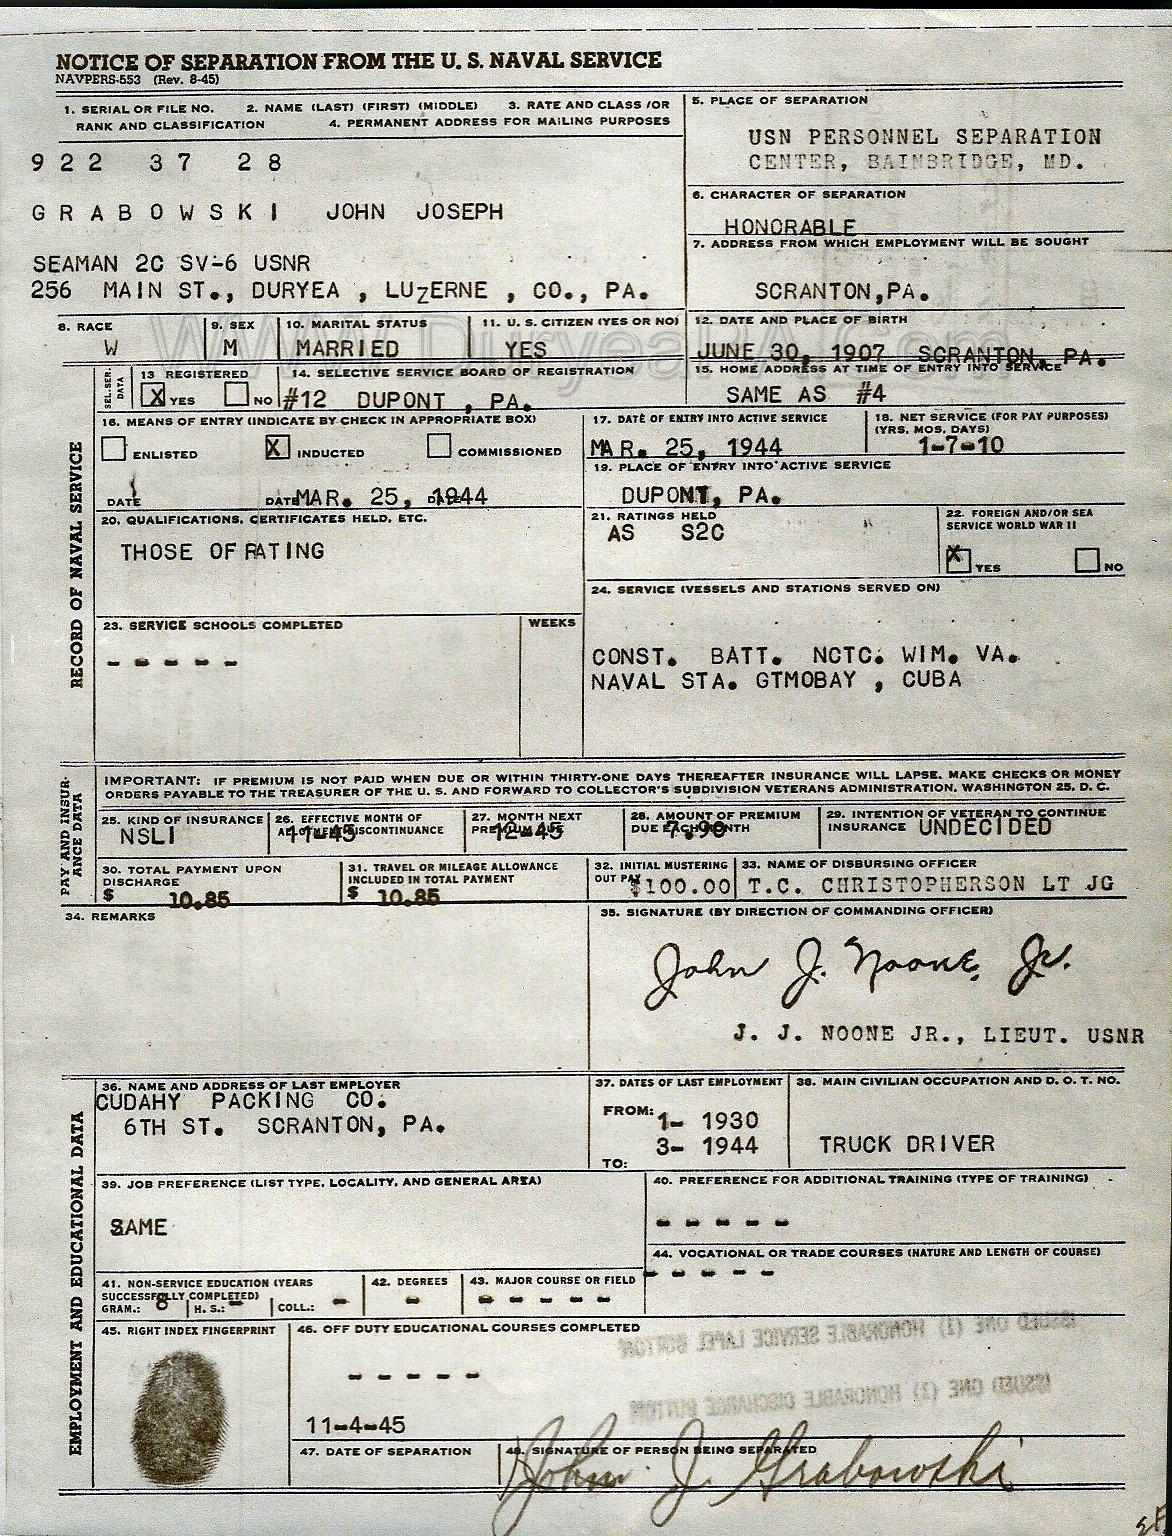 NOTICE OF SEPARATION FROM THE U. S. NAVAL SERVICE
NAVPERS-553 (Rev. 8-45)
1. SERIAL OR FILE NO. 2. NAME (LAST) (FIRST) (MIDDLE) 3. RATE AND CLASS /OR
RANK AND CLASSIFICATION 4. PERMANENT ADDRESS FOR MAILING PURPOSES
922 37 28
GRABOWSKI JOHN JOSEPH
SEAMAN 2C SV-6 USNR
256 MAIN ST., DURYEA , LUZERNE , CO., PA.
5. PLACE OF SEPARATION
USN PERSONNEL SEPARATION
CENTER, BAINBRIDGE, MD.
6. CHARACTER OF SEPARATION
HONORABLE
7. ADDRESS FROM WHICH EMPLOYMENT WILL BE SOUGHT
SCRANTON,PA.
www.DuryeaPA.com
8. RACE
W
9. SEX
M
10. MARITAL STATUS
MARRIED
11. U. S. CITIZEN (YES OR NO)
YES
12. DATE AND PLACE OF BIRTH
JUNE 30, 1907 SCRANTON, PA.
SEL. SER. DATA
13 REGISTERED
X YES NO
14. SELECTIVE SERVICE BOARD OF REGISTRATION
#12 DUPONT , PA.
15. HOME ADDRESS AT TIME OF ENTRY INTO SERVICE
SAME AS #4
RECORD OF NAVAL SERVICE
16. MEANS OF ENTRY (INDICATE BY CHECK IN APPROPRIATE BOX)
ENLISTED X INDUCTED COMMISSIONED
DATE DATE MAR. 25, 1944 DATE
17. DATE OF ENTRY INTO ACTIVE SERVICE
MAR. 25, 1944
18. NET SERVICE (FOR PAY PURPOSES)
(YRS, MOS, DAYS)
1-7-10
19. PLACE OF ENTRY INTO ACTIVE SERVICE
DUPONT, PA.
20. QUALIFICATIONS, CERTIFICATES HELD, ETC.
THOSE OF RATING
21. RATINGS HELD
AS S2C
22. FOREIGN AND/OR SEA
SERVICE WORLD WAR II
X YES NO
23. SERVICE SCHOOLS COMPLETED WEEKS
- - - - -
24. SERVICE (VESSELS AND STATIONS SERVED ON)
CONST. BATT. NCTC. WIM. VA.
NAVAL STA. GTMOBAY , CUBA
PAY AND INSURANCE DATA
IMPORTANT: IF PREMIUM IS NOT PAID WHEN DUE OR WITHIN THIRTY-ONE DAYS THEREAFTER INSURANCE WILL LAPSE. MAKE CHECKS OR MONEY
ORDERS PAYABLE TO THE TREASURER OF THE U. S. AND FORWARD TO COLLECTOR'S SUBDIVISION VETERANS ADMINISTRATION, WASHINGTON 25, D. C.
25. KIND OF INSURANCE
NSLI
26. EFFECTIVE MONTH OF
ALLOTMENT DISCONTINUANCE
11-45
27. MONTH NEXT
PREMIUM DUE
12-45
28. AMOUNT OF PREMIUM
DUE EACH MONTH
7.90
29. INTENTION OF VETERAN TO CONTINUE
INSURANCE UNDECIDED
30. TOTAL PAYMENT UPON
DISCHARGE
$ 10.85
31. TRAVEL OR MILEAGE ALLOWANCE
INCLUDED IN TOTAL PAYMENT
$ 10.85
32. INITIAL MUSTERING
OUT PAY $100.00
33. NAME OF DISBURSING OFFICER
T.C. CHRISTOPHERSON LT JG
34. REMARKS
35. SIGNATURE (BY DIRECTION OF COMMANDING OFFICER)
John J. Noone, Jr.
J. J. NOONE JR., LIEUT. USNR
EMPLOYMENT AND EDUCATIONAL DATA
36. NAME AND ADDRESS OF LAST EMPLOYER
CUDAHY PACKING CO.
6TH ST. SCRANTON, PA.
37. DATES OF LAST EMPLOYMENT
FROM: 1- 1930
3- 1944
TO:
38. MAIN CIVILIAN OCCUPATION AND D. O. T. NO.
TRUCK DRIVER
39. JOB PREFERENCE (LIST TYPE, LOCALITY, AND GENERAL AREA)
SAME
40. PREFERENCE FOR ADDITIONAL TRAINING (TYPE OF TRAINING)
- - - - -
41. NON-SERVICE EDUCATION (YEARS
SUCCESSFULLY COMPLETED)
GRAM.: 8 H. S.: - COLL.: -
42. DEGREES
-
43. MAJOR COURSE OR FIELD
- - - - -
44. VOCATIONAL OR TRADE COURSES (NATURE AND LENGTH OF COURSE)
- - - - -
45. RIGHT INDEX FINGERPRINT
46. OFF DUTY EDUCATIONAL COURSES COMPLETED
- - - - -
ISSUED ONE (1) HONORABLE SERVICE LAPEL BUTTON
ISSUED ONE (1) HONORABLE DISCHARGE BUTTON
11-4-45
47. DATE OF SEPARATION
48. SIGNATURE OF PERSON BEING SEPARATED
John J. Grabowski